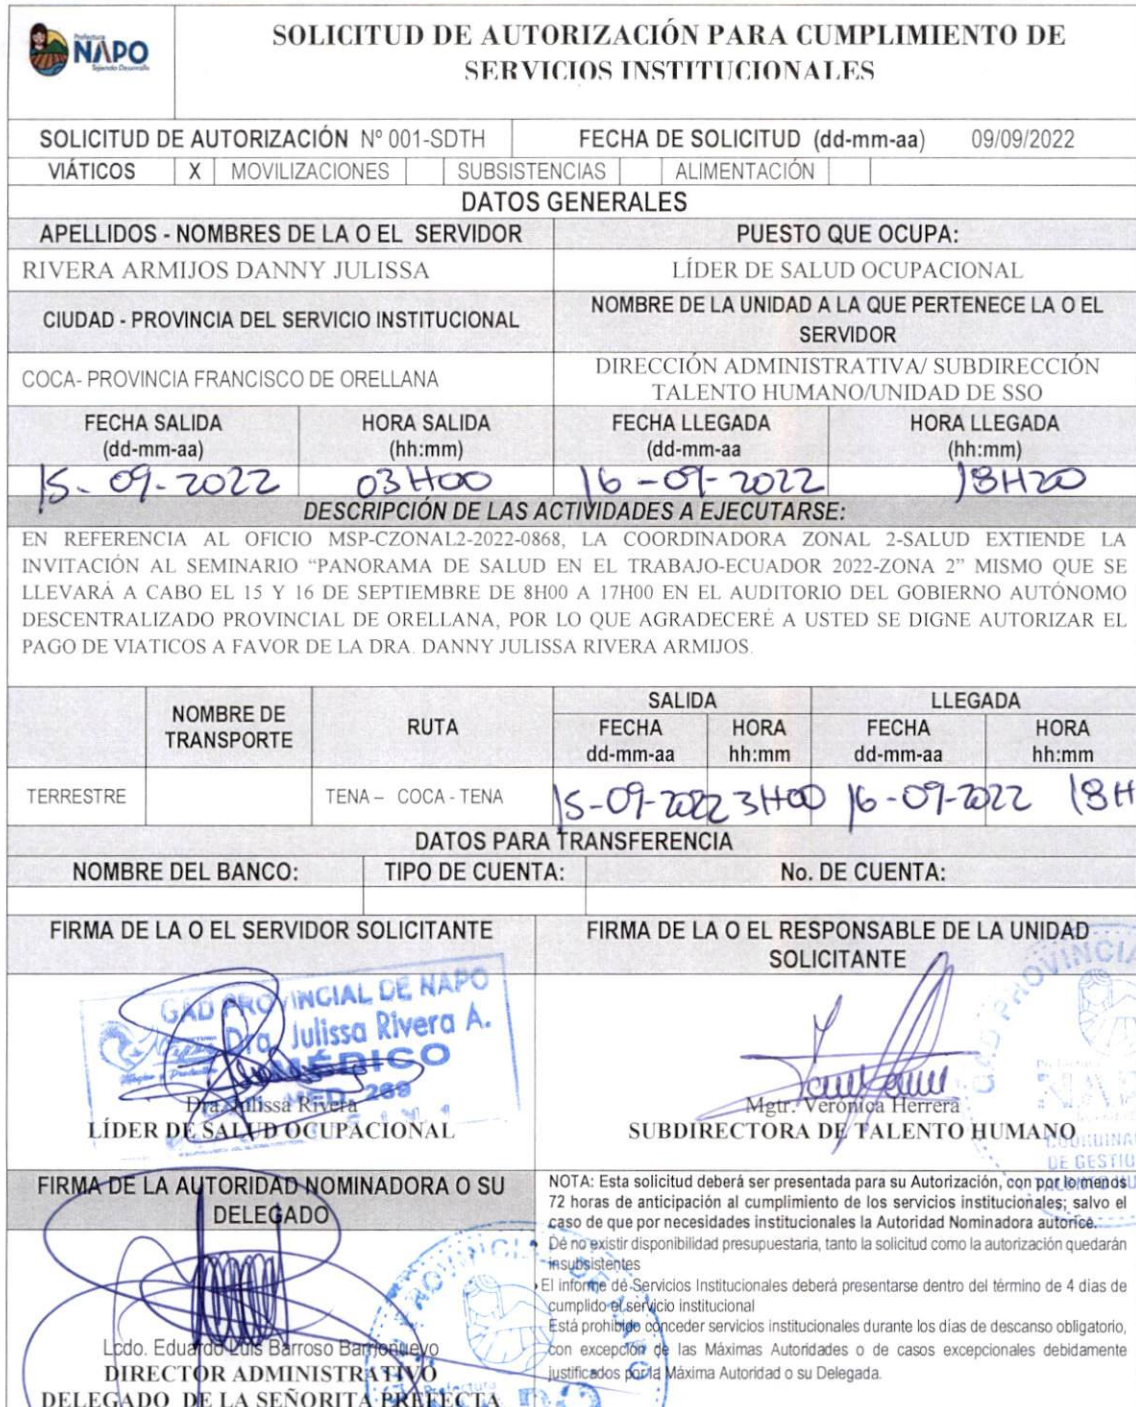 Prefectura
NAPO
Tejiendo Desarrollo
SOLICITUD DE AUTORIZACIÓN PARA CUMPLIMIENTO DE
SERVICIOS INSTITUCIONALES
SOLICITUD DE AUTORIZACIÓN Nº 001-SDTH FECHA DE SOLICITUD (dd-mm-aa) 09/09/2022
VIÁTICOS X MOVILIZACIONES SUBSISTENCIAS ALIMENTACIÓN
DATOS GENERALES
APELLIDOS - NOMBRES DE LA O EL SERVIDOR PUESTO QUE OCUPA:
RIVERA ARMIJOS DANNY JULISSA LÍDER DE SALUD OCUPACIONAL
CIUDAD - PROVINCIA DEL SERVICIO INSTITUCIONAL NOMBRE DE LA UNIDAD A LA QUE PERTENECE LA O EL
SERVIDOR
COCA- PROVINCIA FRANCISCO DE ORELLANA DIRECCIÓN ADMINISTRATIVA/ SUBDIRECCIÓN
TALENTO HUMANO/UNIDAD DE SSO
FECHA SALIDA HORA SALIDA FECHA LLEGADA HORA LLEGADA
(dd-mm-aa) (hh:mm) (dd-mm-aa (hh:mm)
15-09-2022 03H00 16-09-2022 18H20
DESCRIPCIÓN DE LAS ACTIVIDADES A EJECUTARSE:
EN REFERENCIA AL OFICIO MSP-CZONAL2-2022-0868, LA COORDINADORA ZONAL 2-SALUD EXTIENDE LA
INVITACIÓN AL SEMINARIO “PANORAMA DE SALUD EN EL TRABAJO-ECUADOR 2022-ZONA 2” MISMO QUE SE
LLEVARÁ A CABO EL 15 Y 16 DE SEPTIEMBRE DE 8H00 A 17H00 EN EL AUDITORIO DEL GOBIERNO AUTÓNOMO
DESCENTRALIZADO PROVINCIAL DE ORELLANA, POR LO QUE AGRADECERÉ A USTED SE DIGNE AUTORIZAR EL
PAGO DE VIATICOS A FAVOR DE LA DRA. DANNY JULISSA RIVERA ARMIJOS.
SALIDA LLEGADA
NOMBRE DE TRANSPORTE RUTA FECHA HORA FECHA HORA
dd-mm-aa hh:mm dd-mm-aa hh:mm
TERRESTRE TENA – COCA - TENA 15-09-2022 3H00 16-09-2022 18H
DATOS PARA TRANSFERENCIA
NOMBRE DEL BANCO: TIPO DE CUENTA: No. DE CUENTA:
FIRMA DE LA O EL SERVIDOR SOLICITANTE FIRMA DE LA O EL RESPONSABLE DE LA UNIDAD
SOLICITANTE
GAD PROVINCIAL DE NAPO
Dra. Julissa Rivera A.
MÉDICO
MED. 269
Dra. Julissa Rivera
LÍDER DE SALUD OCUPACIONAL
Mgtr. Verónica Herrera
SUBDIRECTORA DE TALENTO HUMANO
FIRMA DE LA AUTORIDAD NOMINADORA O SU
DELEGADO
NOTA: Esta solicitud deberá ser presentada para su Autorización, con por lo menos
72 horas de anticipación al cumplimiento de los servicios institucionales; salvo el
caso de que por necesidades institucionales la Autoridad Nominadora autorice.
De no existir disponibilidad presupuestaria, tanto la solicitud como la autorización quedarán
insubsistentes
El informe de Servicios Institucionales deberá presentarse dentro del término de 4 días de
cumplido el servicio institucional
Está prohibido conceder servicios institucionales durante los días de descanso obligatorio,
con excepción de las Máximas Autoridades o de casos excepcionales debidamente
justificados por la Máxima Autoridad o su Delegada.
Lcdo. Eduardo Luis Barroso Barrionuevo
DIRECTOR ADMINISTRATIVO
DELEGADO DE LA SEÑORITA PREFECTA